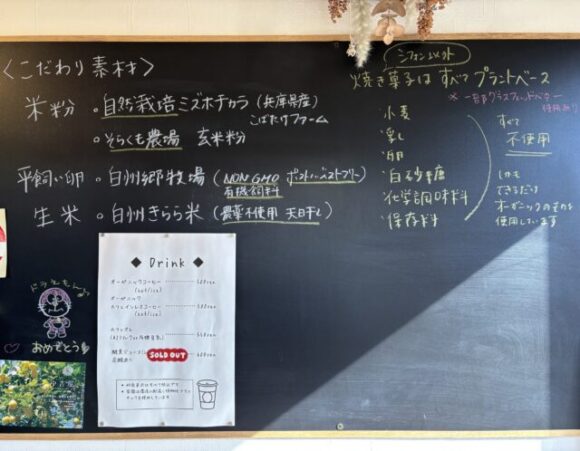 〈こだわり素材〉
米粉 ・自然栽培ミズホチカラ(兵庫県産)
こばたけファーム
・そらくも農場 玄米粉
平飼い卵 ・白州郷牧場(NON GMO ポストハーベストフリー)
有機飼料
生米 ・白州きらら米(農薬不使用 天日干し)
シフォン以外
焼き菓子は すべて プラントベース
※一部グラスフェッドバター
・小麦
・乳
・卵
・白砂糖
・化学調味料
・保存料
すべて
不使用
しかも
できるだけ
オーガニックのものを
使用しています
◆ Drink ◆
オーガニックコーヒー
(hot/ice)
オーガニック
カフェインレスコーヒー
(hot/ice)
SOLD OUT
ドラえもん♪
おめでとう